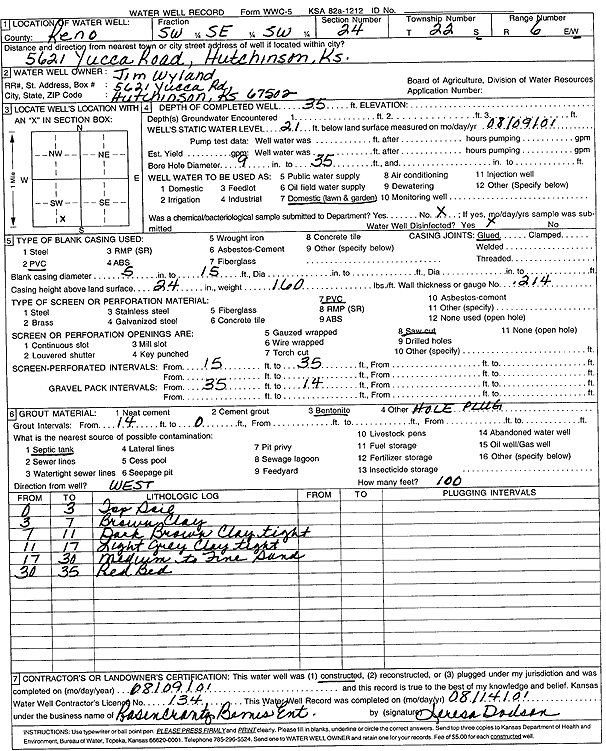 WATER WELL RECORD Form WWC-5 KSA 82a-1212 ID No.
1 LOCATION OF WATER WELL: Fraction Section Number Township Number Range Number
County: Reno SW ¼ SE ¼ SW ¼ 24 T 22 S R 6 E/W
Distance and direction from nearest town or city street address of well if located within city?
5621 Yucca Road, Hutchinson, Ks.
2 WATER WELL OWNER: Jim Wyland
RR#, St. Address, Box # : 5621 Yucca Rd Board of Agriculture, Division of Water Resources
City, State, ZIP Code : Hutchinson, Ks 67502 Application Number:
3 LOCATE WELL'S LOCATION WITH AN "X" IN SECTION BOX:
N
NW NE
W E
SW SE
X
S
1 Mile
4 DEPTH OF COMPLETED WELL 35 ft. ELEVATION:
Depth(s) Groundwater Encountered 1 ft. 2 ft. 3 ft.
WELL'S STATIC WATER LEVEL 21 ft. below land surface measured on mo/day/yr 08/09/01
Pump test data: Well water was ft. after hours pumping gpm
Est. Yield gpm: Well water was ft. after hours pumping gpm
Bore Hole Diameter 9 in. to 35 ft., and in. to ft.
WELL WATER TO BE USED AS: 5 Public water supply 8 Air conditioning 11 Injection well
1 Domestic 3 Feedlot 6 Oil field water supply 9 Dewatering 12 Other (Specify below)
2 Irrigation 4 Industrial 7 Domestic (lawn & garden) 10 Monitoring well
Was a chemical/bacteriological sample submitted to Department? Yes No X ; If yes, mo/day/yrs sample was submitted Water Well Disinfected? Yes X No
5 TYPE OF BLANK CASING USED: 5 Wrought iron 8 Concrete tile CASING JOINTS: Glued Clamped
1 Steel 3 RMP (SR) 6 Asbestos-Cement 9 Other (specify below) Welded
2 PVC 4 ABS 7 Fiberglass Threaded
Blank casing diameter 5 in. to 15 ft., Dia in. to ft., Dia in. to ft.
Casing height above land surface 24 in., weight 160 lbs./ft. Wall thickness or gauge No. .214
TYPE OF SCREEN OR PERFORATION MATERIAL: 7 PVC 10 Asbestos-cement
1 Steel 3 Stainless steel 5 Fiberglass 8 RMP (SR) 11 Other (specify)
2 Brass 4 Galvanized steel 6 Concrete tile 9 ABS 12 None used (open hole)
SCREEN OR PERFORATION OPENINGS ARE: 5 Gauzed wrapped 8 Saw cut 11 None (open hole)
1 Continuous slot 3 Mill slot 6 Wire wrapped 9 Drilled holes
2 Louvered shutter 4 Key punched 7 Torch cut 10 Other (specify)
SCREEN-PERFORATED INTERVALS: From 15 ft. to 35 ft., From ft. to ft.
From ft. to ft., From ft. to ft.
GRAVEL PACK INTERVALS: From 35 ft. to 14 ft., From ft. to ft.
From ft. to ft., From ft. to ft.
6 GROUT MATERIAL: 1 Neat cement 2 Cement grout 3 Bentonite 4 Other HOLE PLUG
Grout Intervals: From 14 ft. to 0 ft., From ft. to ft., From ft. to ft.
What is the nearest source of possible contamination: 10 Livestock pens 14 Abandoned water well
1 Septic tank 4 Lateral lines 7 Pit privy 11 Fuel storage 15 Oil well/Gas well
2 Sewer lines 5 Cess pool 8 Sewage lagoon 12 Fertilizer storage 16 Other (specify below)
3 Watertight sewer lines 6 Seepage pit 9 Feedyard 13 Insecticide storage
Direction from well? WEST How many feet? 100
FROM TO LITHOLOGIC LOG FROM TO PLUGGING INTERVALS
0 3 Top Soil
3 7 Brown Clay
7 11 Dark Brown Clay tight
11 17 Light Grey Clay tight
17 30 Medium to Fine Sand
30 35 Red Bed
7 CONTRACTOR'S OR LANDOWNER'S CERTIFICATION: This water well was (1) constructed, (2) reconstructed, or (3) plugged under my jurisdiction and was
completed on (mo/day/year) 08/09/01 and this record is true to the best of my knowledge and belief. Kansas
Water Well Contractor's License No. 134 This Water Well Record was completed on (mo/day/yr) 08/14/01
under the business name of Rosencrantz Bemis Ent. by (signature) Teresa Dodson
INSTRUCTIONS: Use typewriter or ball point pen. PLEASE PRESS FIRMLY and PRINT clearly. Please fill in blanks, underline or circle the correct answers. Send top three copies to Kansas Department of Health and
Environment, Bureau of Water, Topeka, Kansas 66620-0001. Telephone 785-296-5524. Send one to WATER WELL OWNER and retain one for your records. Fee of $5.00 for each constructed well.